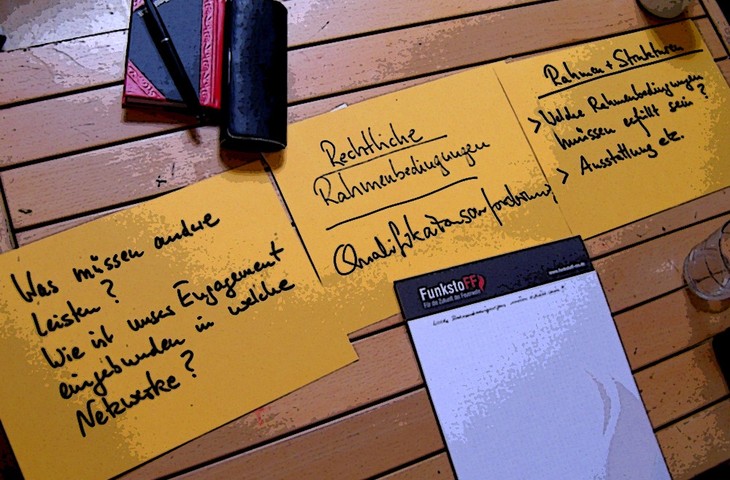 Was müssen andere
leisten?
Wie ist unser Engagement
eingebunden in welche
Netzwerke?
Rechtliche
Rahmenbedingungen
Qualifikationsanforderung
Rahmen + Strukturen
> Welche Rahmenbedingungen
müssen erfüllt sein?
> Ausstattung etc.
FunkstoFF
Für die Zukunft der Feuerwehr